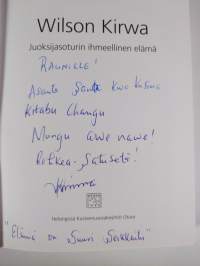 Wilson Kirwa
Juoksijasoturin ihmeellinen elämä
RAUNILLE!
Asante Sana Kwa Kusoma
Kitabu Changu
Mungu awe nawe!
Rakkaudella
Helsingissä Kustannusosakeyhtiö Otava
"Elämä on Suuri Seikkailu"